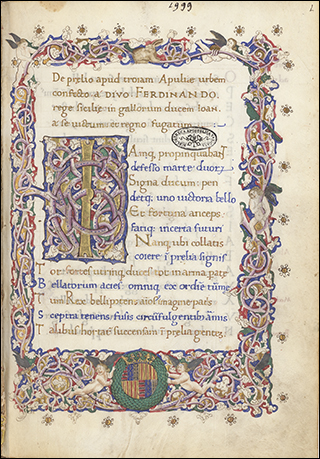 1999
De prelio apud troiam Apuliæ urbem
confecto a DIVO FERDINANDO.
rege siciliæ in gallorum ducem Ioan.
a se uictum et regno fugatum
IAnq; propinquabant
defesso marte duor
Signa ducum: pen
detq; uno uictoria bello
Et fortuna anceps.
fatiq; incerta futuri
Nanq; ubi collatis
coiere i prelia signis
Tot utrinq; duces tot in arma
Bellatorum acies: omniq; ex ordine
Tum Rex bellipotens,
Sceptra tenens: fusis
Talibus succensum i prelia